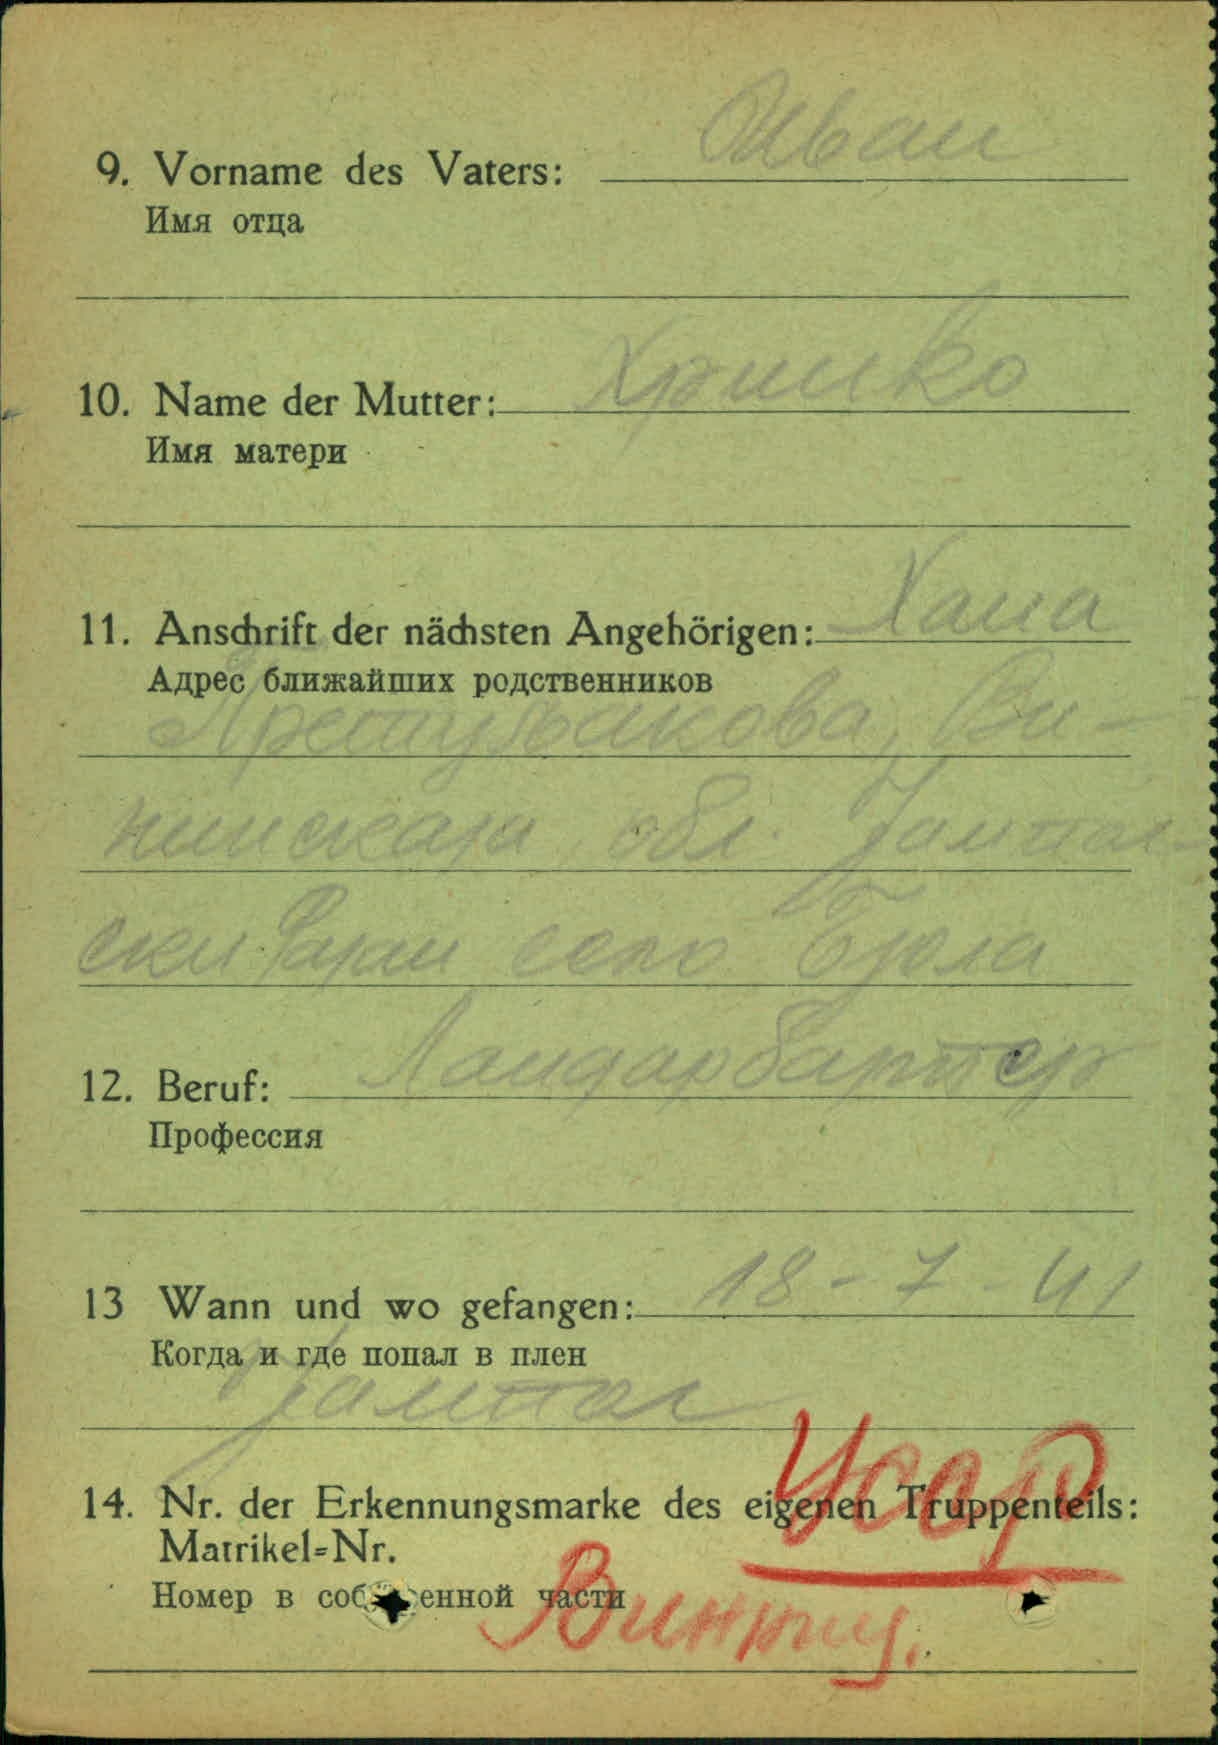 9. Vorname des Vaters: Иван
Имя отца
10. Name der Mutter: Хришко
Имя матери
11. Anschrift der nächsten Angehörigen: Хана
Адрес ближайших родственников
Ви-
ниискаја обл. Јампол-
ски село
12. Beruf: Ландарбартер
Профессия
13 Wann und wo gefangen: 18-7-41
Когда и где попал в плен
Јампол
14. Nr. der Erkennungsmarke des eigenen Truppenteils:
УССР
Matrikel=Nr.
Номер в собственной части
Виннниц.